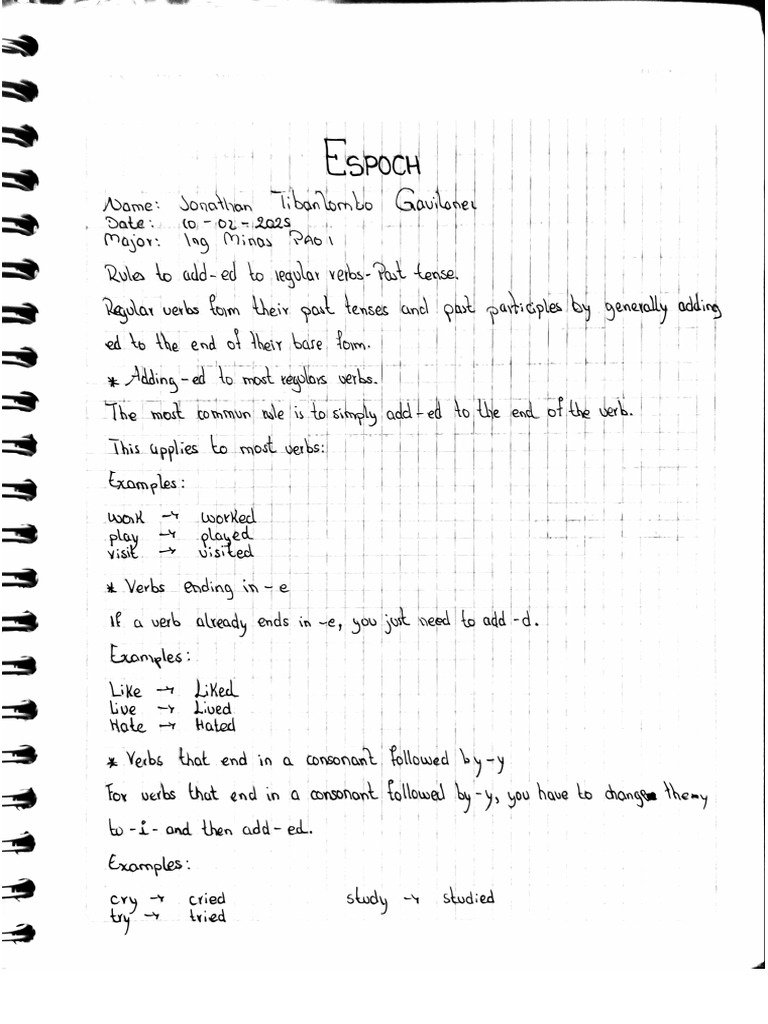 ESPOCH
Name: Jonathan Tibanlombo Gavilanez
Date: 10-02-2025
Major: Ing Minas PAO 1
Rules to add-ed to regular verbs-Past tense.
Regular verbs form their past tenses and past participles by generally adding
ed to the end of their base form.
* Adding-ed to most regulars verbs.
The most commun rule is to simply add-ed to the end of the verb.
This applies to most verbs:
Examples:
work → worked
play → played
visit → visited
* Verbs ending in -e
If a verb already ends in -e, you just need to add -d.
Examples:
Like → Liked
Live → Lived
Hate → Hated
* Verbs that end in a consonant followed by -y
For verbs that end in a consonant followed by -y, you have to change the -y
to -i- and then add -ed.
Examples:
cry → cried study → studied
try → tried